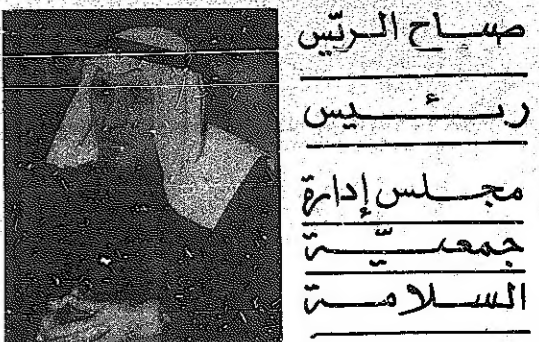 صباح الريّس
رئيس
مجلس إدارة
جمعيّة
السلامة